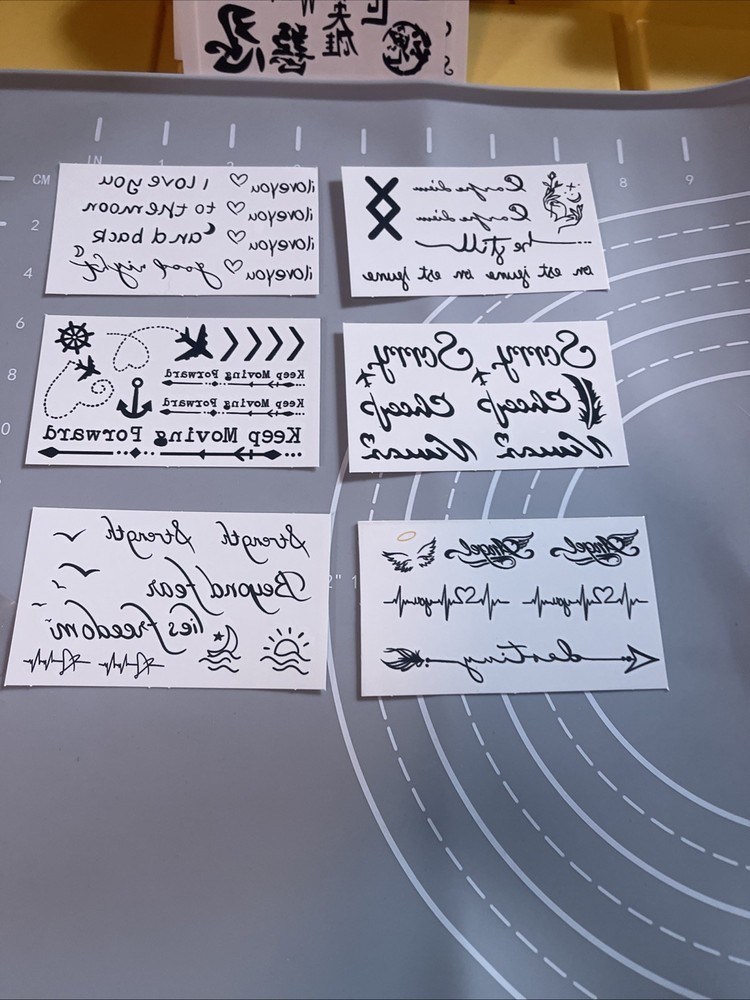 英雄
IN 1 2 3 8 9
CM 2 4 6 8 0
iloveyou I love you
iloveyou to the moon
iloveyou and back
iloveyou good night
Carpe diem
Carpe diem
be still
on est jeune on est jeune
Keep Moving Forward
Keep Moving Forward
Keep Moving Forward
Sorry Sorry
Strength Strength
Beyond fear
lies freedom
Angel Angel
destiny
2" 1